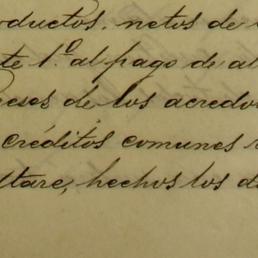 oductos, netos de
te 1.º al pago de al
eses de los acredo
créditos comunes
ltare, hechos los d